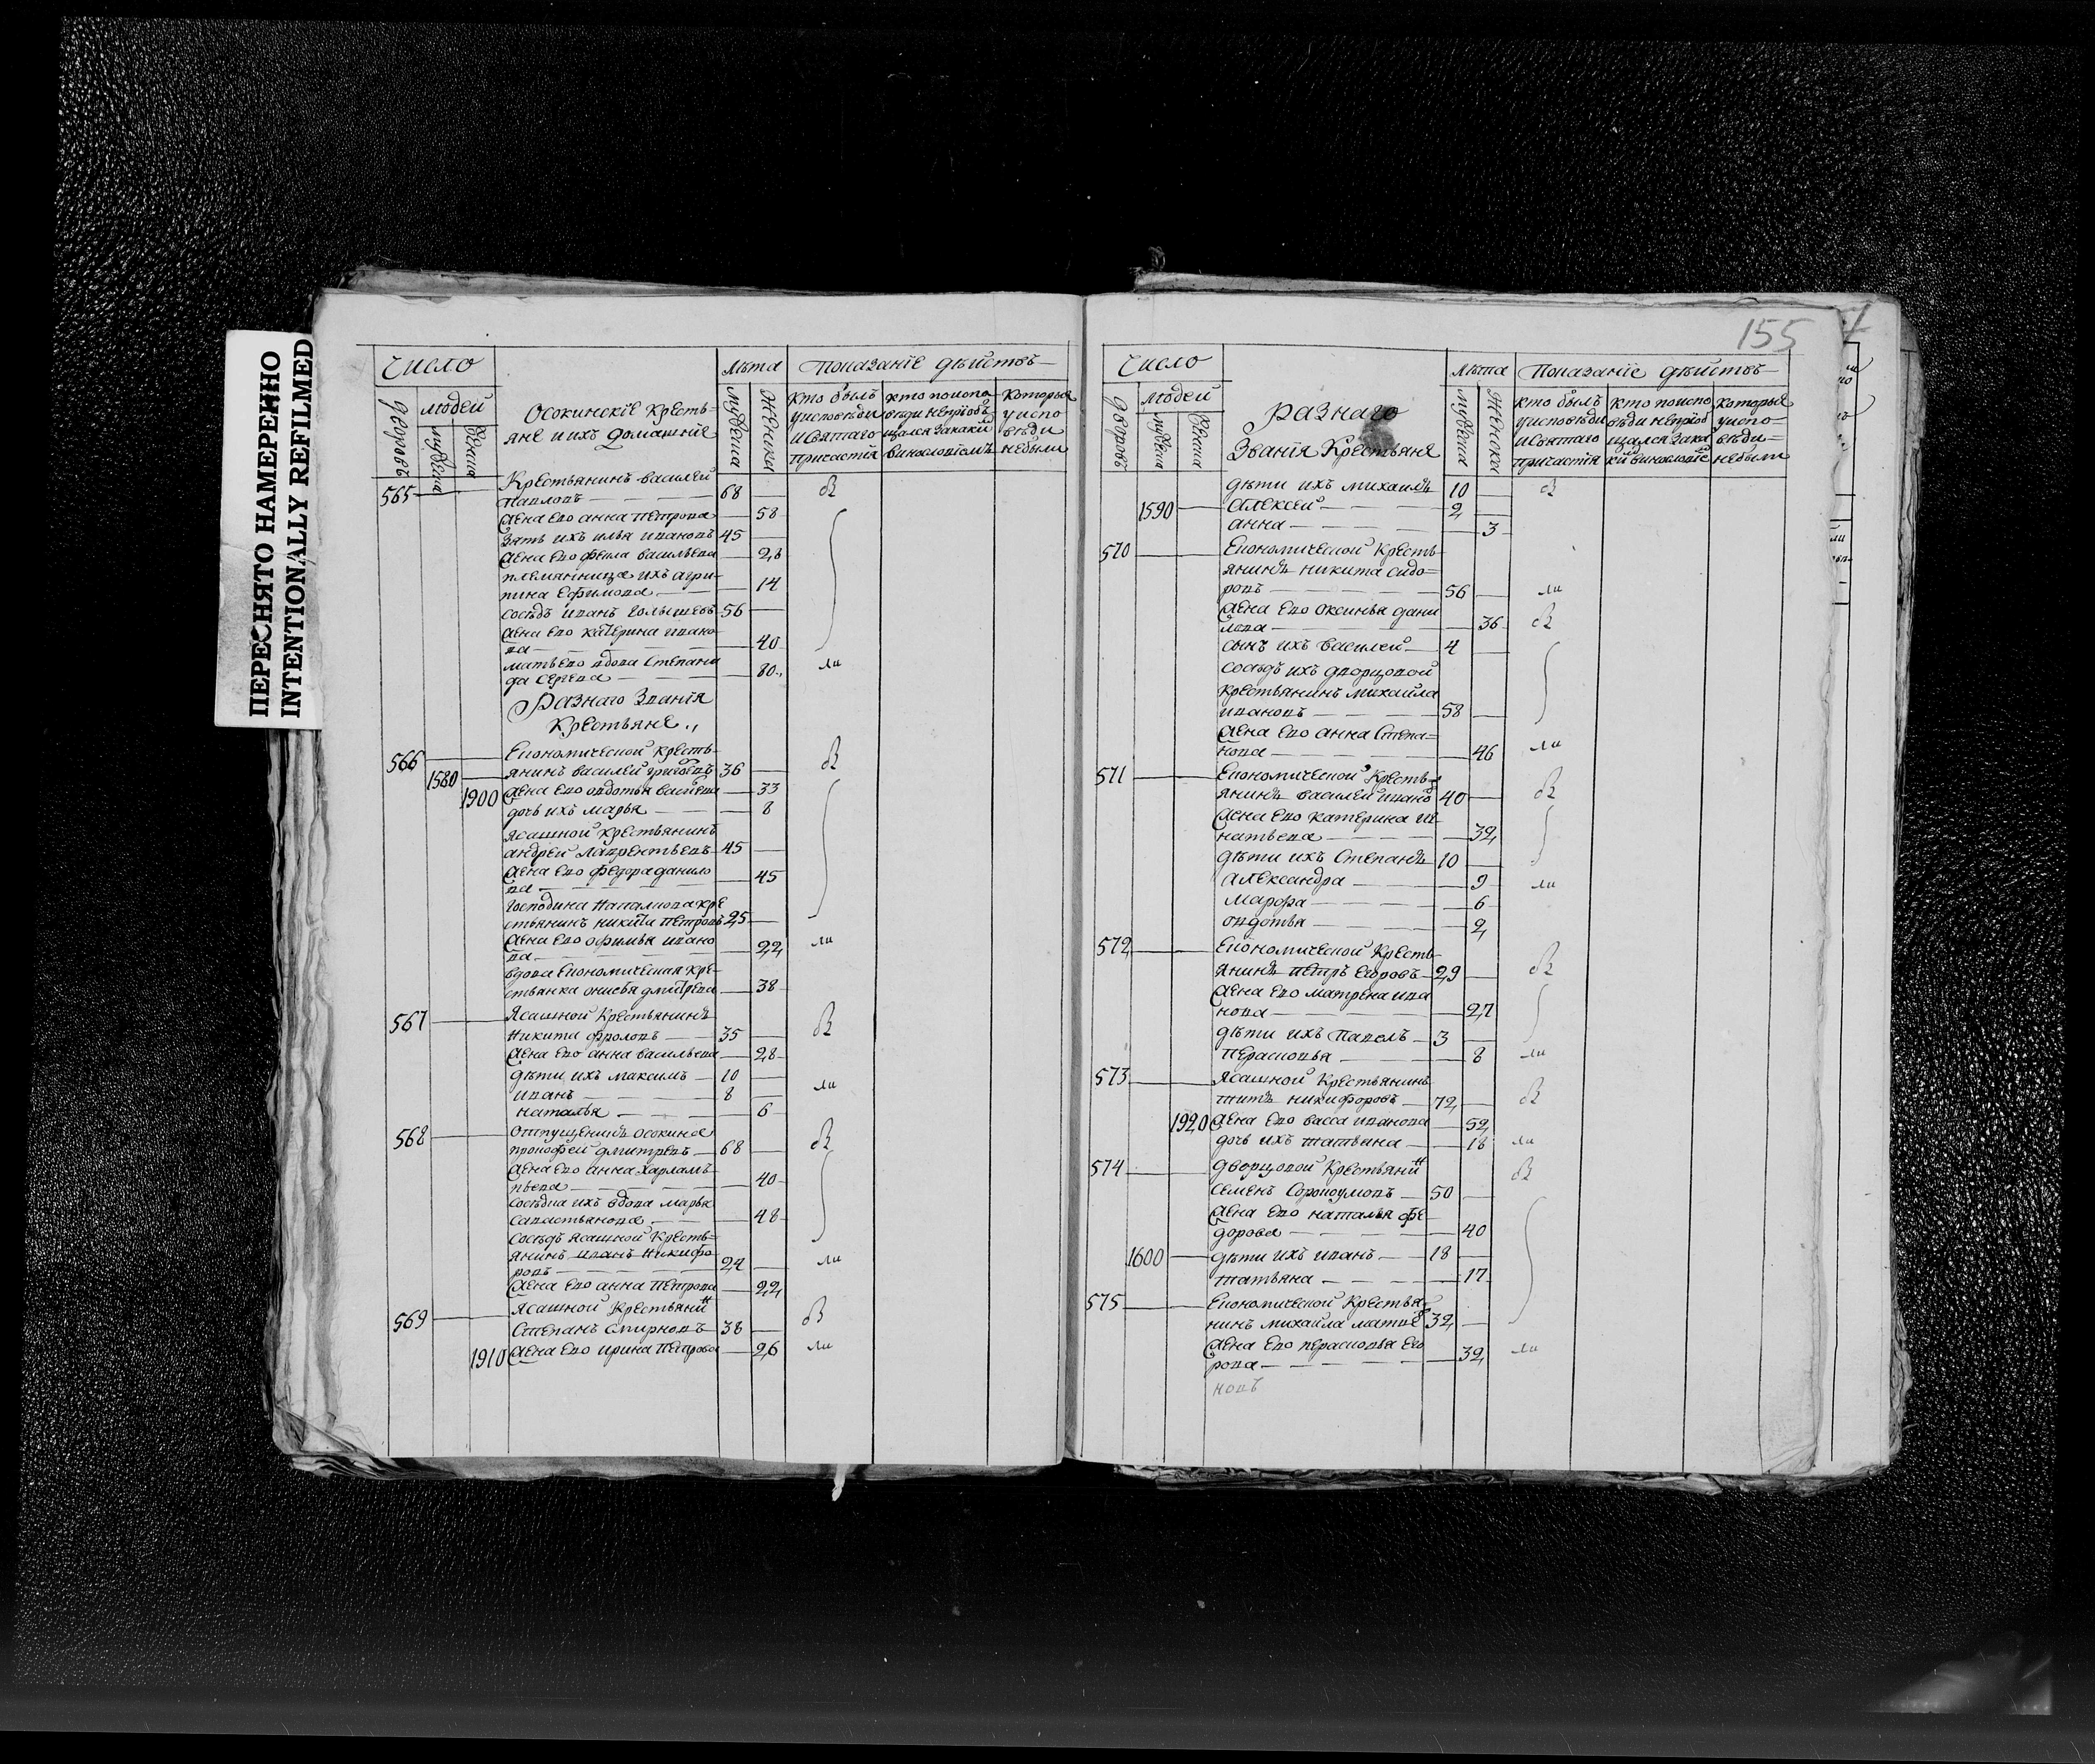 ПЕРЕСНЯТО НАМЕРЕННО
INTENTIONALLY REFILMED
155
Число
Лѣта
Показанiе дѣйствъ
дворовъ
людей
мужеска
женска
Осокинскiе кресть-
яне и ихъ домашнiе
мужеска
женска
кто былъ
у исповѣди
и святаго
причастiя
кто по испо
вѣди не прiоб
щался за каки
винословiемъ
которые
у испо
вѣди
не были
565
Крестьянинъ василей
павловъ 68
жена ево анна петрова 58
зять ихъ илья ивановъ 45
жена ево фекла васильева 28
племянница ихъ агри-
пина ефимова 14
сосѣдъ иванъ голышевъ 56
жена ево катерина ивано
ва 40
мать ево вдова степани
да сергева 80
Разнаго звания
крестьяне
566
1580
1900
Економической кресть-
янинъ василей григоревъ 36
жена ево овдотья васильева 33
дочь ихъ марья 8
ясашной крестьянинъ
андрей лаврентьевъ 45
жена ево федора данило
ва 45
господина кре
стьянинъ никита петровъ 25
жена ево офимья ивано
ва 22
вдова економическая кре-
стьянка онисья дмитрева 38
567
Ясашной крестьянинъ
никита фроловъ 35
жена ево анна васильева 28
дѣти ихъ максимъ 10
иванъ 8
наталья 6
568
отпущеникъ осокина
прокофей дмитревъ 68
жена ево анна харламъ-
пьева 40
сосѣдка ихъ вдова марья
савастьянова 48
сосѣдъ ясашной кресть-
янинъ иванъ никифо
ровъ 24
жена ево анна петрова 22
569
1910
Ясашной крестьянинъ
степанъ смирновъ 38
жена ево ирина петрова 26
Число
Лѣта
Показанiе дѣйствъ
дворовъ
людей
мужеска
женска
Разнаго
званiя крестьяне
мужеска
женска
кто былъ
у исповѣди
и святаго
причастiя
кто по испо
вѣди не прiоб
щался за ка
кимъ винословiе
которые
у испо-
вѣди-
не были
дѣти ихъ михаилъ 10
1590
алексей 2
анна 3
570
Економической кресть-
янинъ никита сидо-
ровъ 56
жена ево оксинья дани
лова 36
сынъ ихъ василей 4
сосѣдъ ихъ дворцовой
крестьянинъ михайла
ивановъ 58
жена ево анна степа-
нова 46
571
Економической кресть-
янинъ василей ивано 40
жена ево катерина иг
натьева 32
дѣти ихъ степанъ 10
александра 9
марфа 6
овдотья 2
572
Економической кресть-
янинъ петръ егоровъ 29
жена ево матрена ива
нова 27
дѣти ихъ павелъ 3
перасковья 8
573
1920
Ясашной крестьянинъ
титъ никифоровъ 72
жена ево васса иванова 52
дочь ихъ татьяна 18
574
1600
дворцовой крестьянинъ
семенъ сороко умовъ 50
жена ево наталья фе
дорова 40
дѣти ихъ иванъ 18
татьяна 17
575
Економической крестья-
нинъ михайла матве 32
жена ево перасковья его
рова 32
новъ